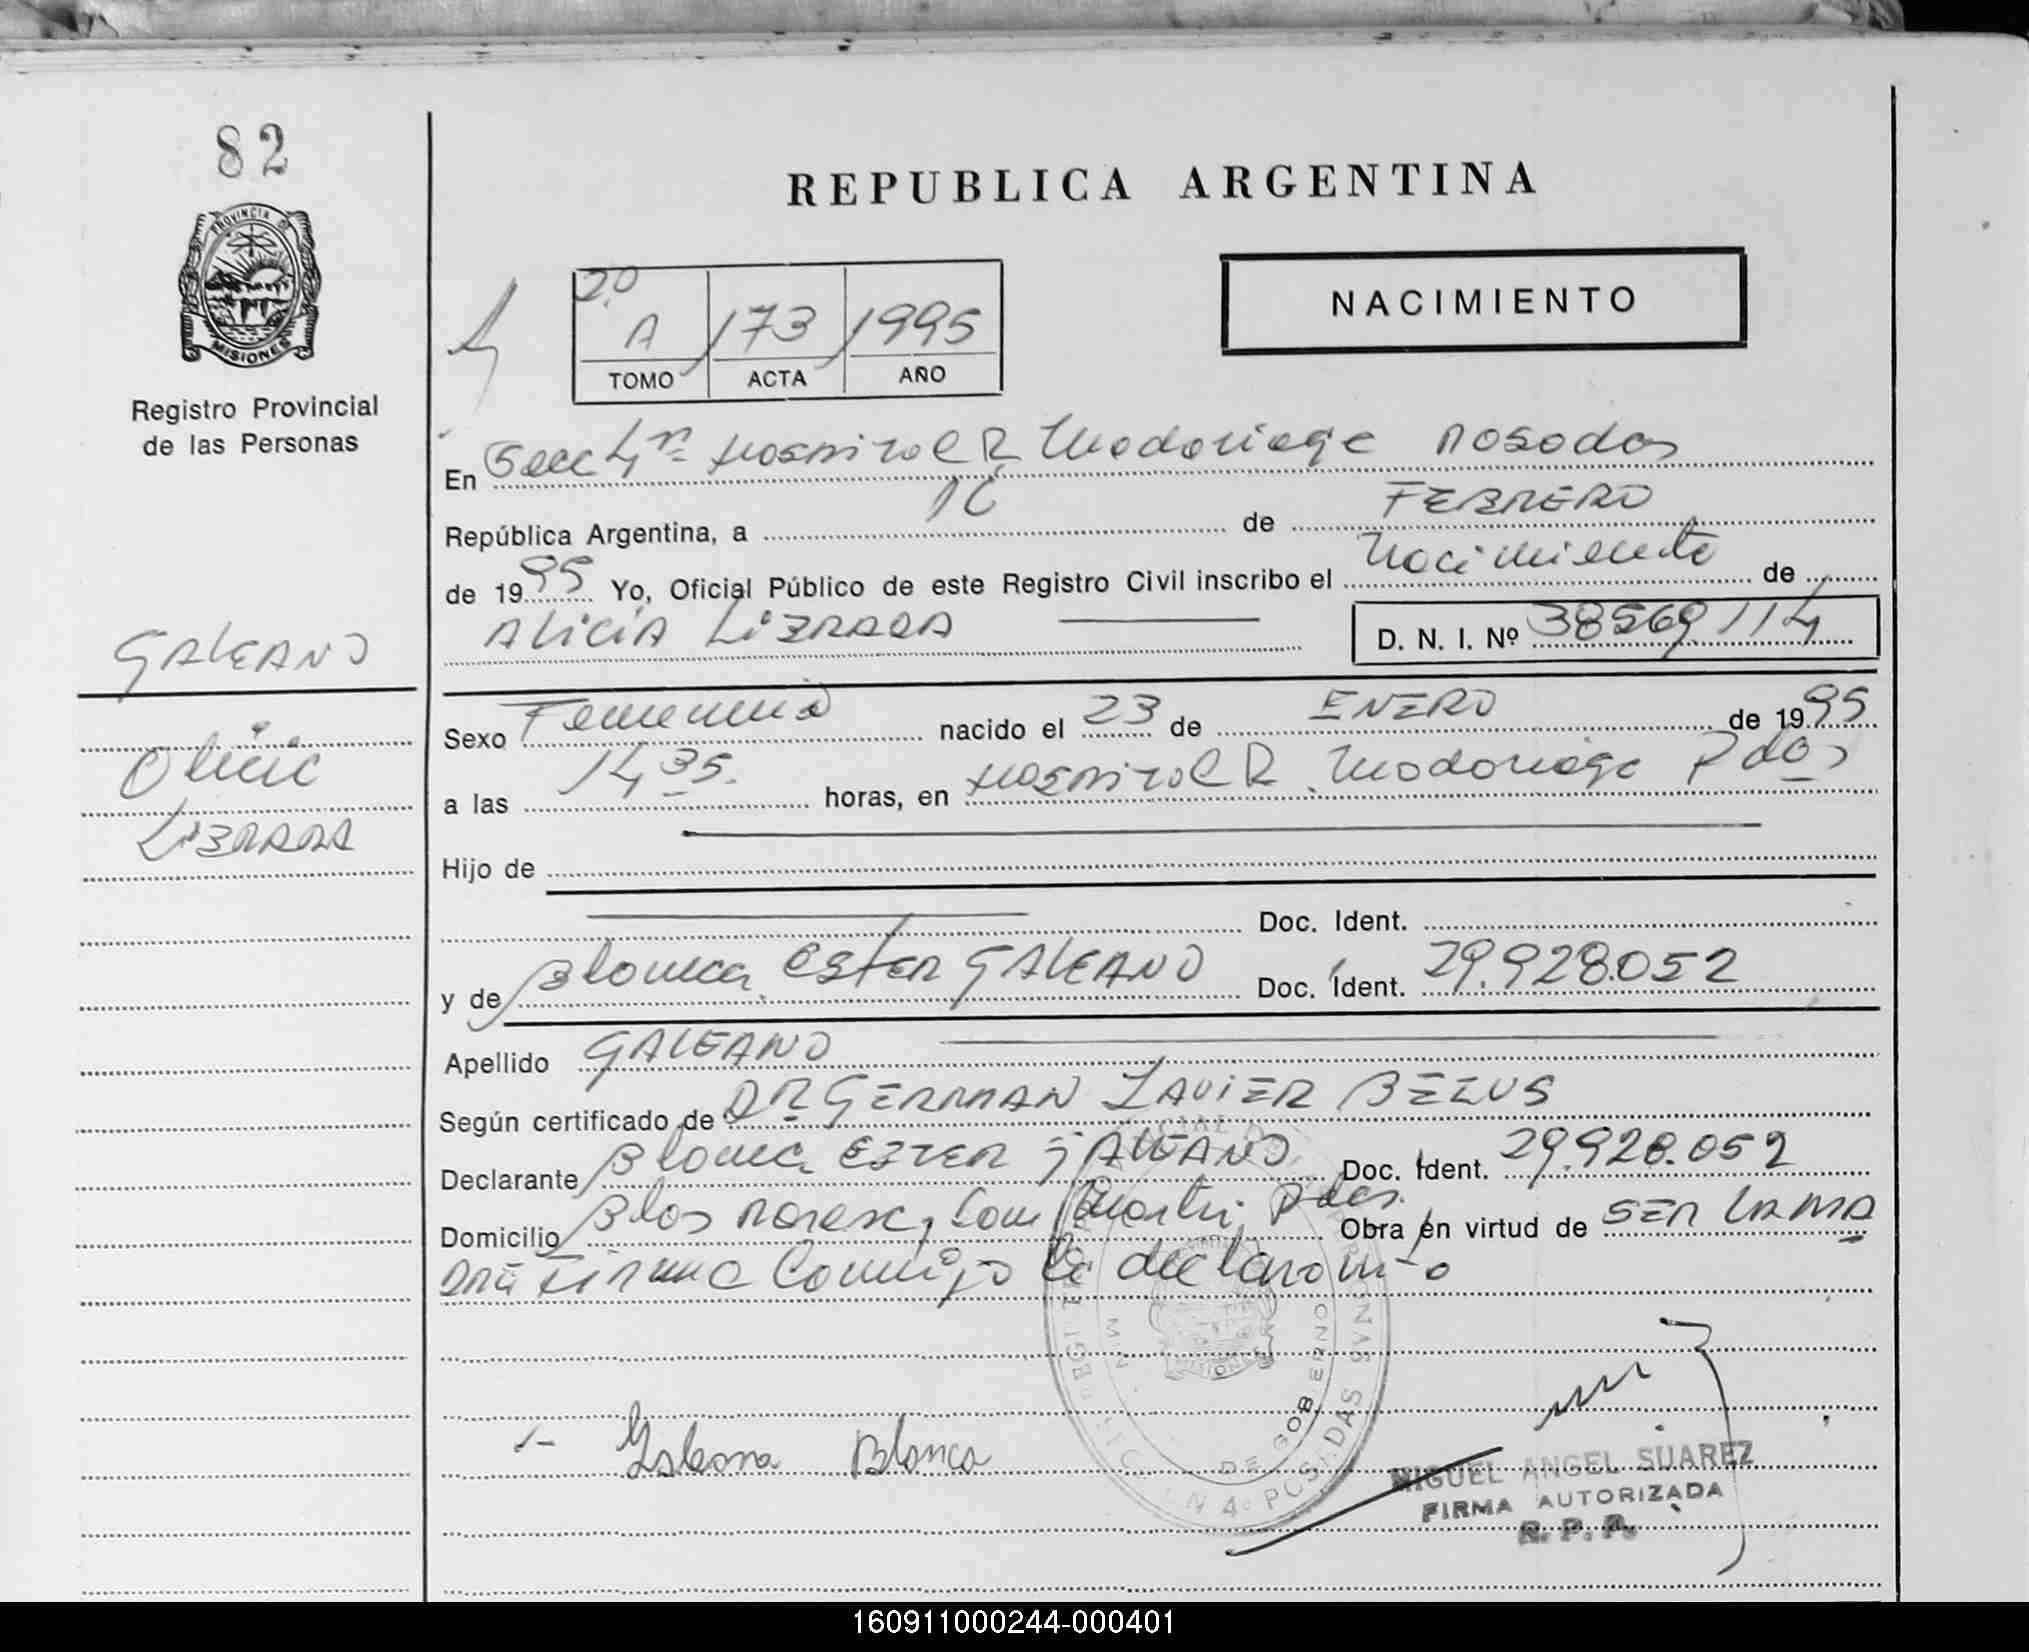 82
REPUBLICA ARGENTINA
PROVINCIA DE
MISIONES
Registro Provincial
de las Personas
NACIMIENTO
2º
A 173 1995
TOMO ACTA AÑO
En Secc 4ta Hospital R Madariaga Posadas
República Argentina, a 16 de FEBRERO
de 1995 Yo, Oficial Público de este Registro Civil inscribo el Nacimiento de
ALICIA
D. N. I. Nº 38569114
GALEANO
Alicia
Sexo Femenino nacido el 23 de ENERO de 1995
a las 14,35. horas, en Hospital R. Madariaga Pdas
Hijo de
Doc. Ident.
y de Blanca Ester GALEANO Doc. Ident. 29.928.052
Apellido GALEANO
Según certificado de DR GERMAN JAVIER BEZUS
Declarante Blanca ESTER GALEANO Doc. Ident. 29.928.052
Domicilio San Martin Pdas. Obra en virtud de SER LA MA
DRE Firma Conmigo la declarante
Galeano Blanca
MIGUEL ANGEL SUAREZ
FIRMA AUTORIZADA
R. P. P.
160911000244-000401